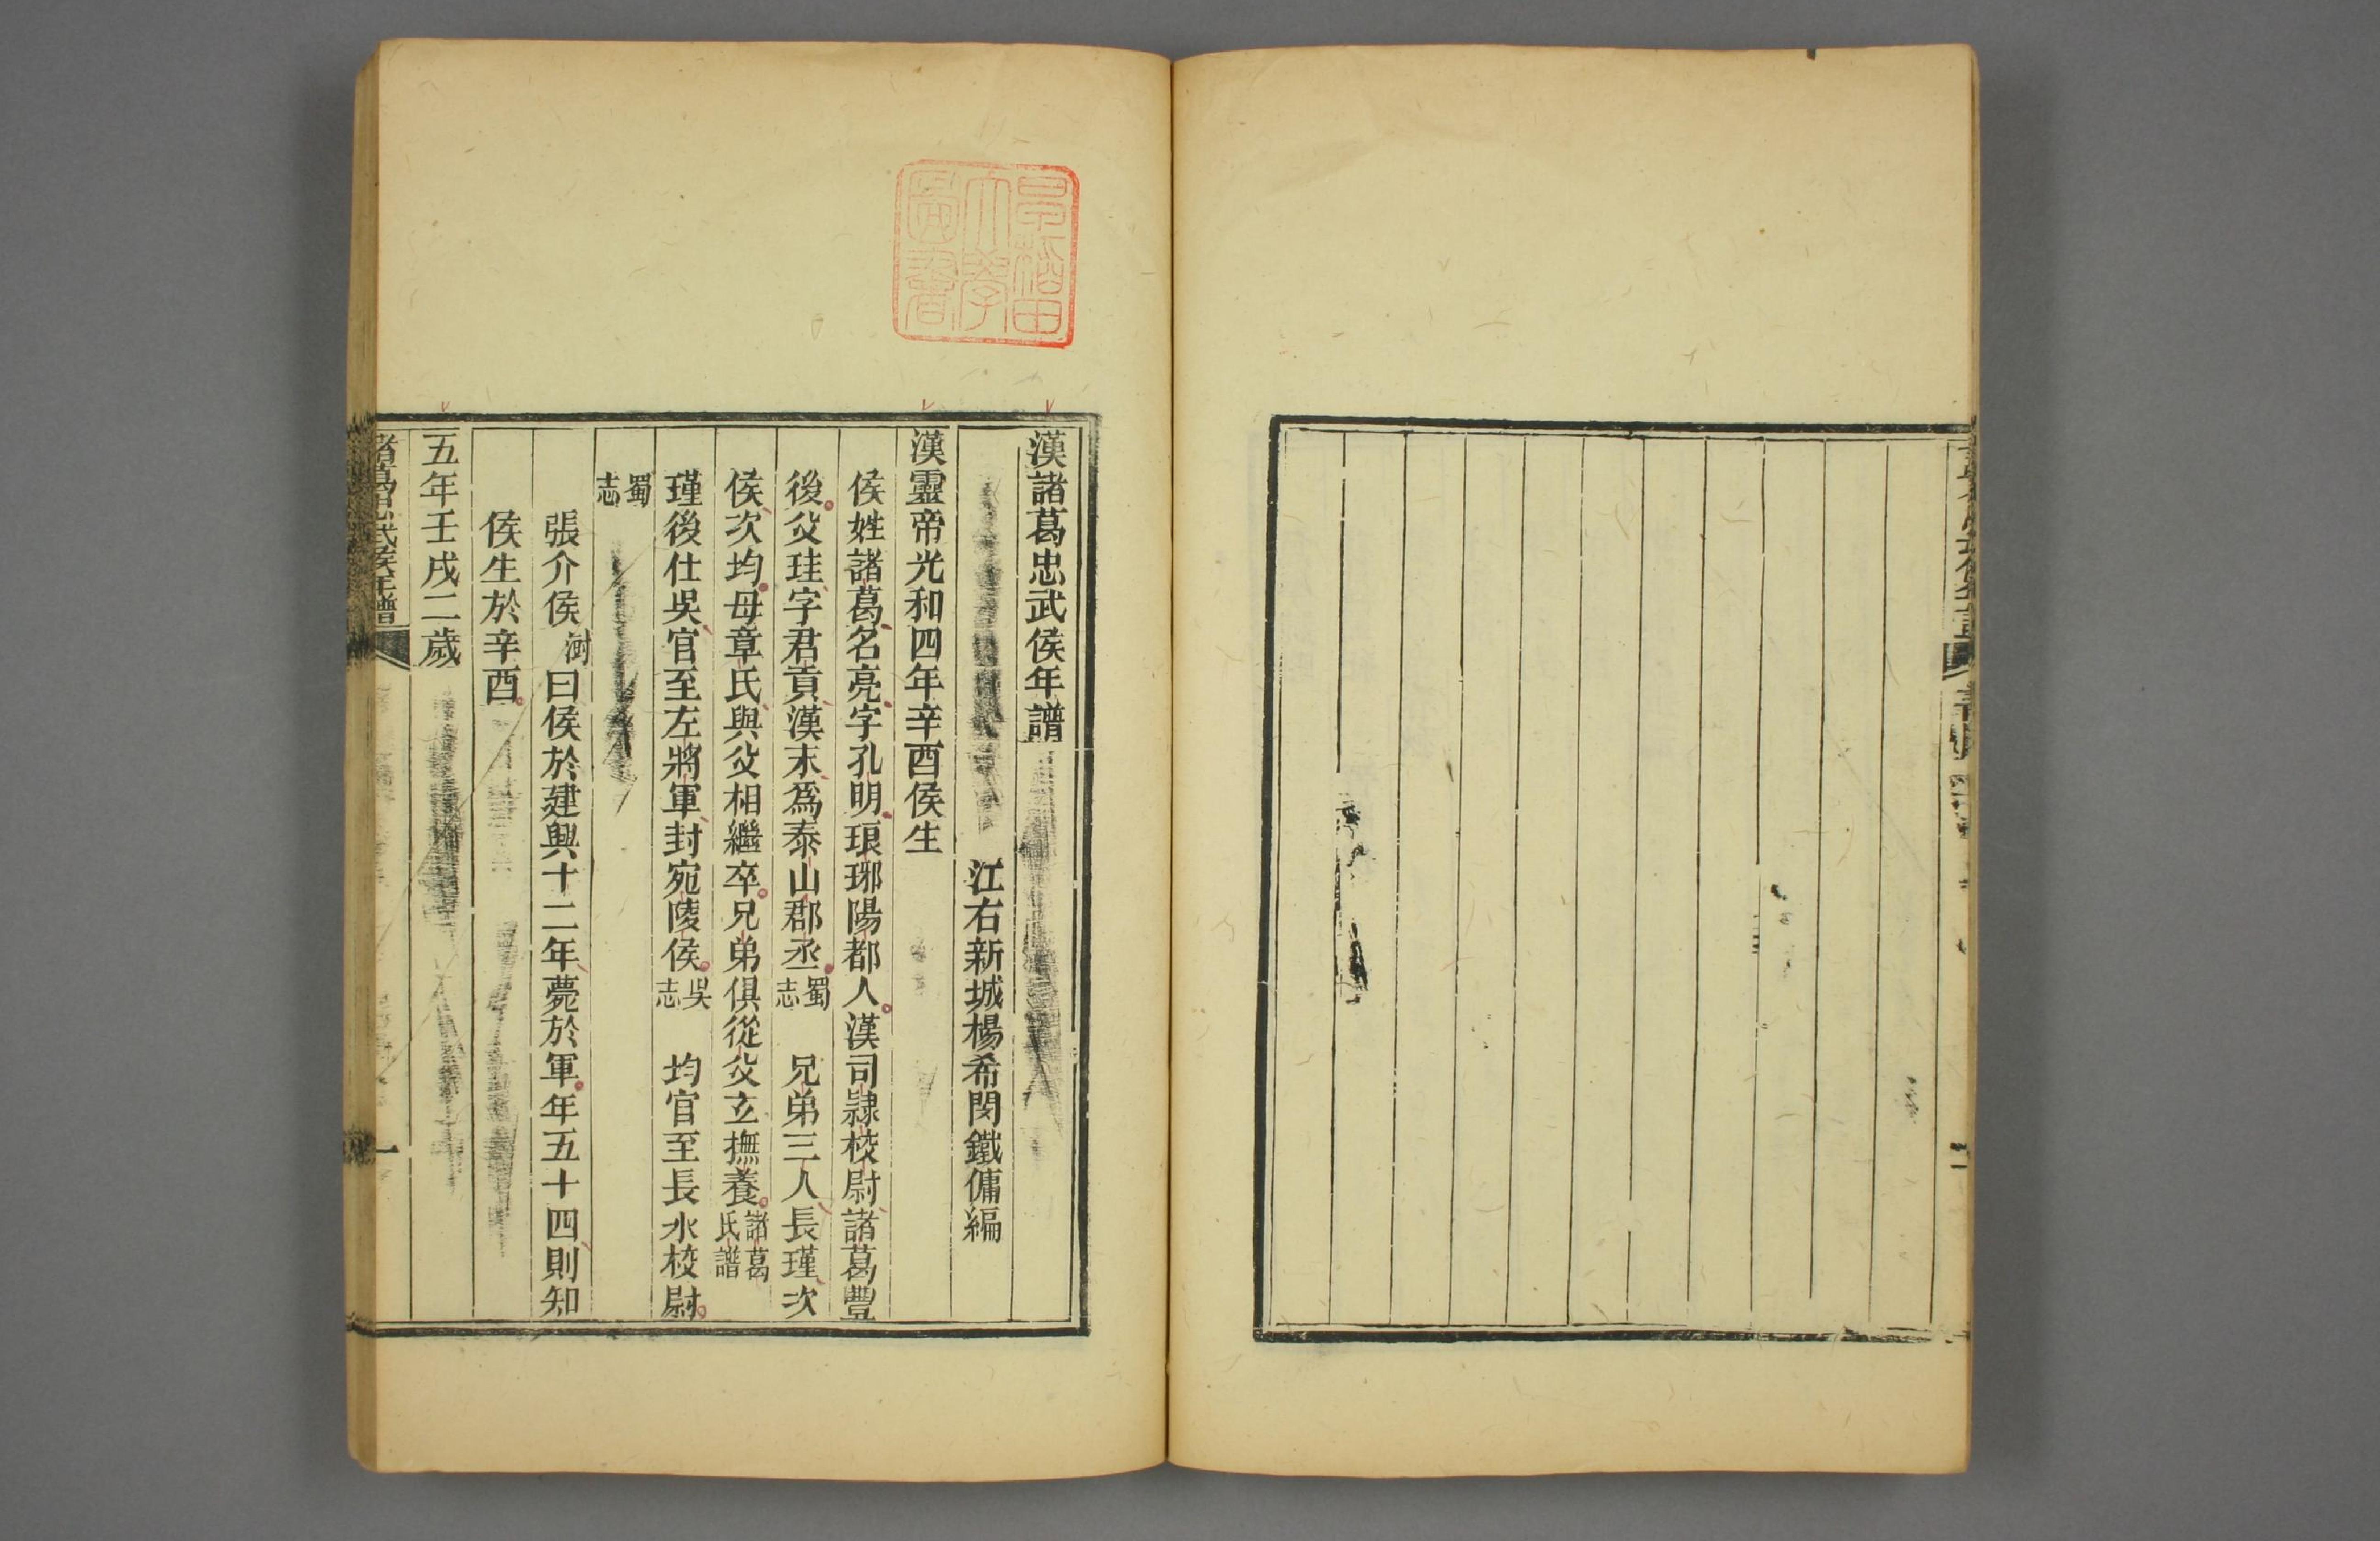 漢諸葛忠武侯年譜
江右新城楊希閔鐵傭編
漢靈帝光和四年辛酉侯生
侯姓諸葛名亮字孔明琅琊陽都人漢司隸校尉諸葛豐
後父珪字君貢漢末爲泰山郡丞蜀志 兄弟三人長瑾次
侯次均母章氏與父相繼卒兄弟俱從父玄撫養諸葛氏譜
瑾後仕吳官至左將軍封宛陵侯吳志 均官至長水校尉
蜀志
張介侯澍曰侯於建興十二年薨於軍年五十四則知
侯生於辛酉
五年壬戌二歲
諸葛忠武侯年譜
一
早稻田大學圖書